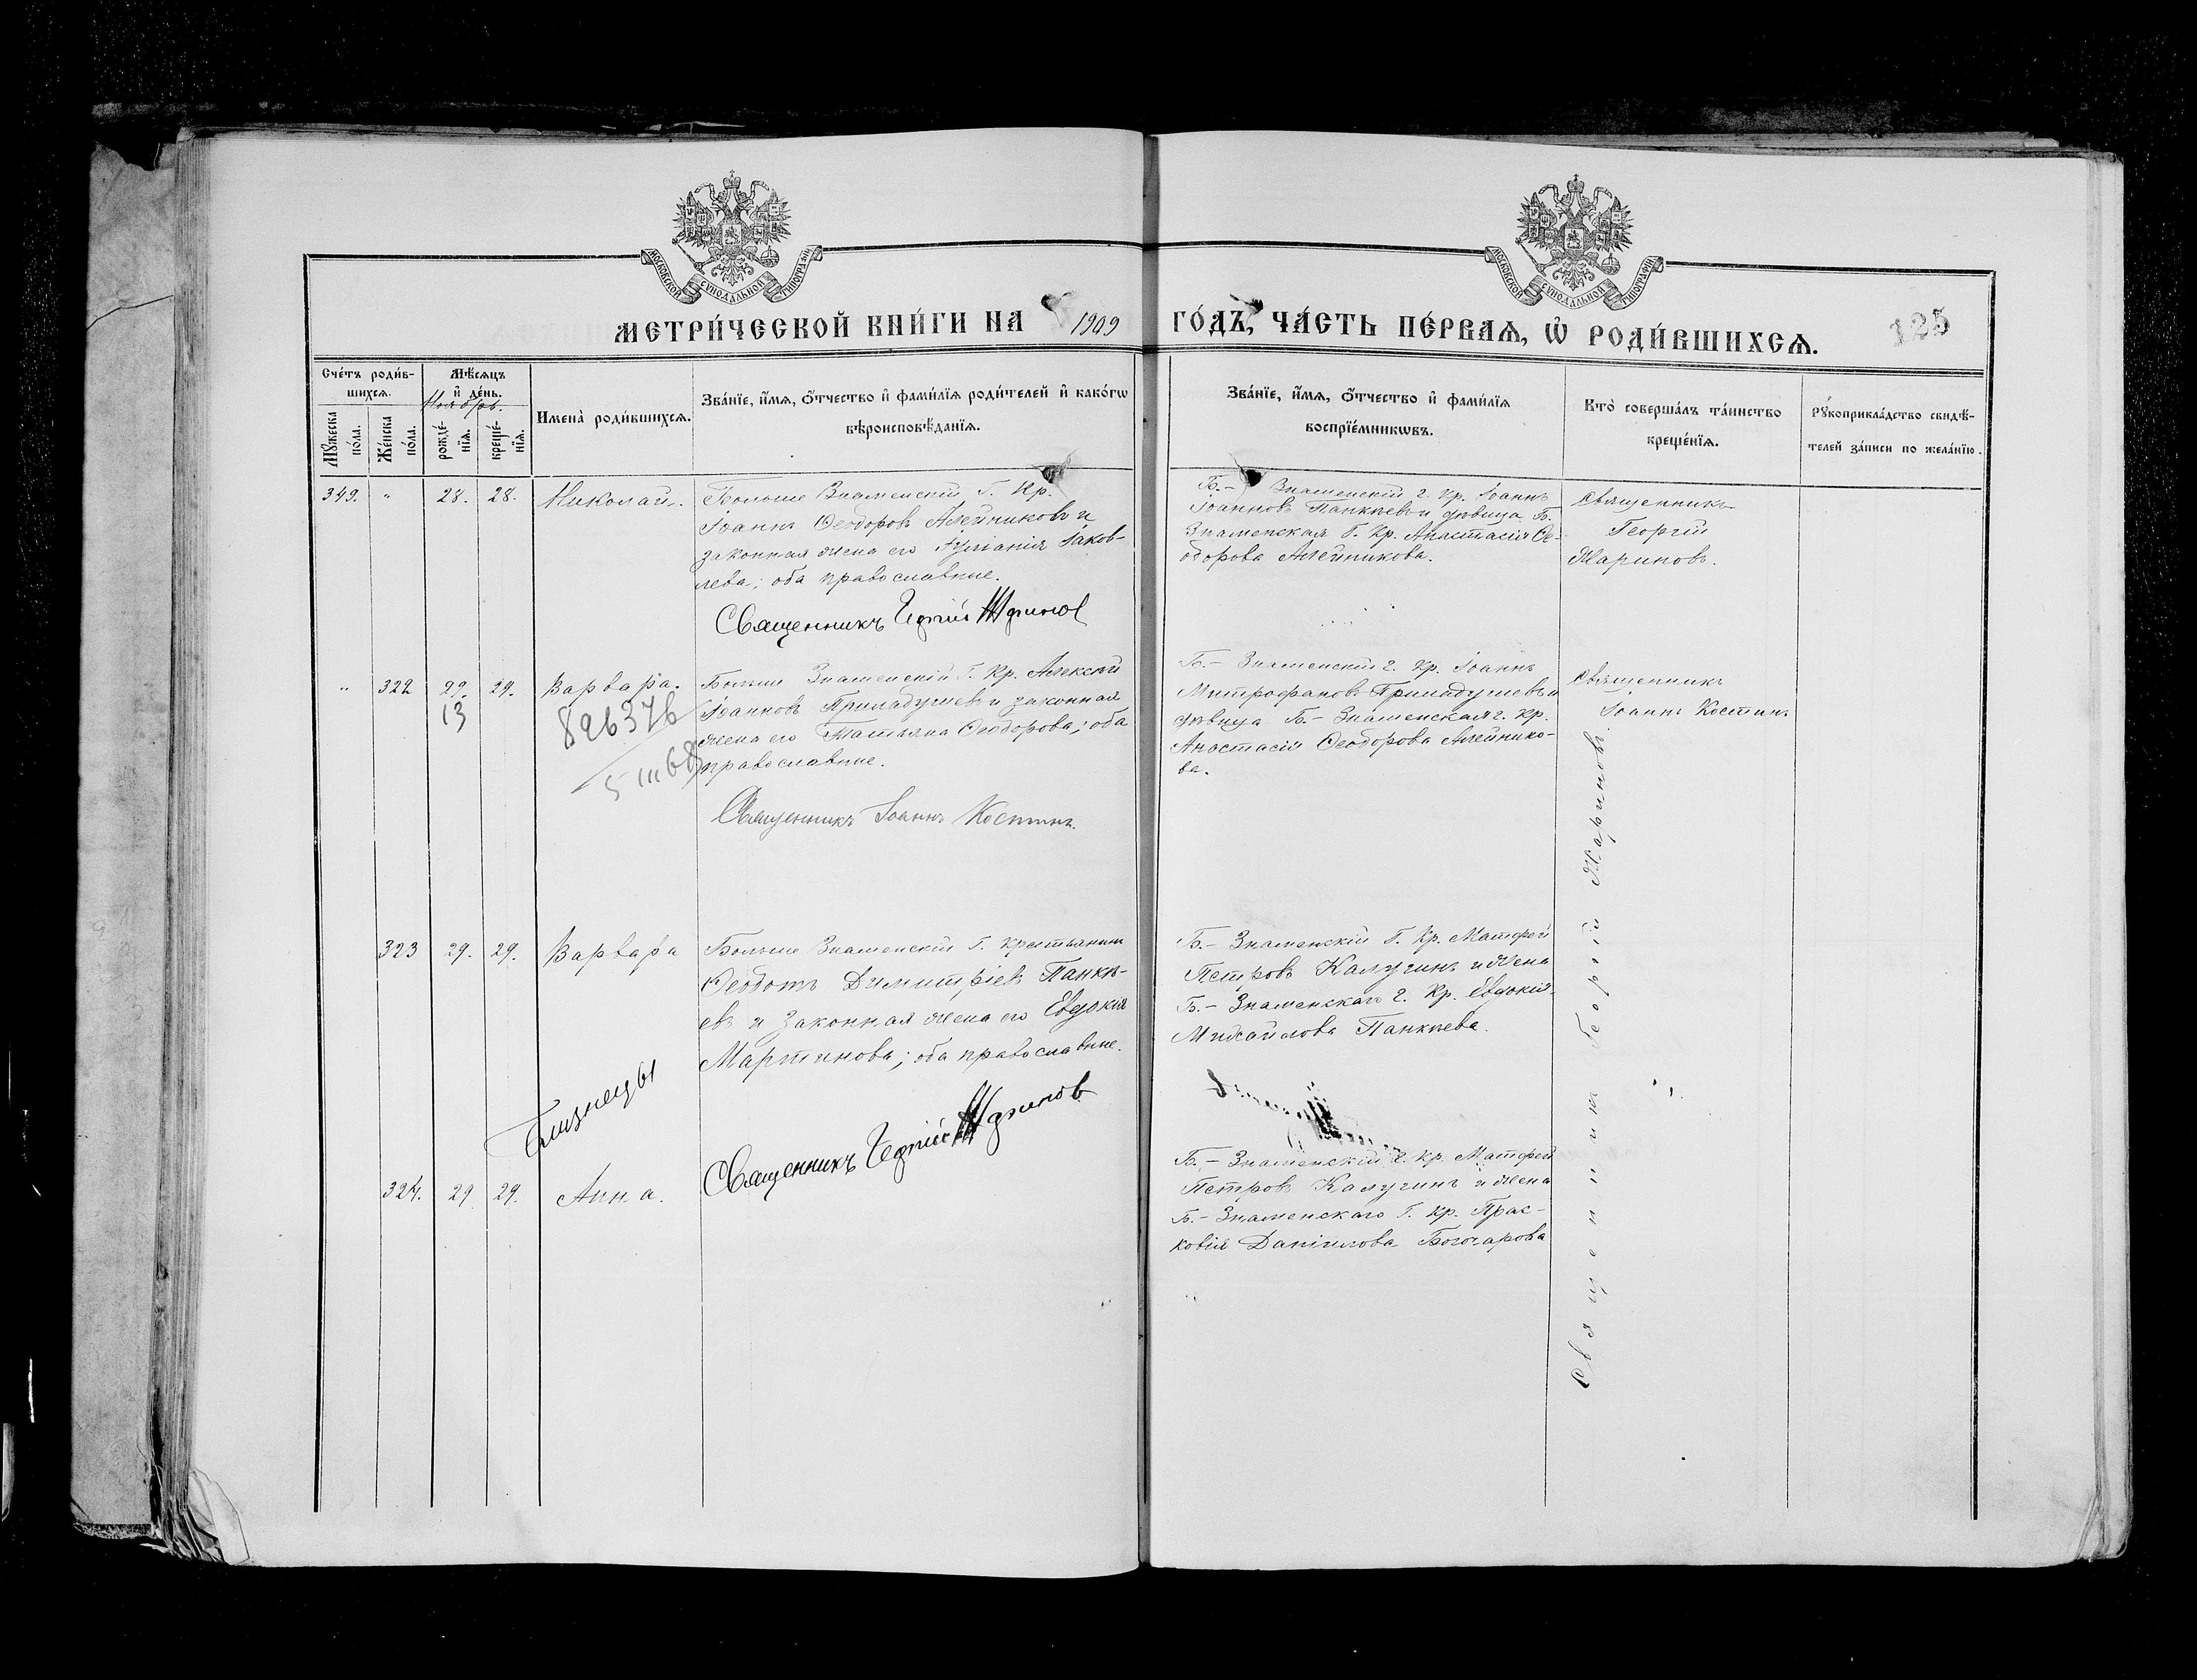 МОСКОВСКОЙ СѴНОДАЛЬНОЙ ТИПОГРАФІИ
МОСКОВСКОЙ СѴНОДАЛЬНОЙ ТИПОГРАФІИ
МЕТРИ́ЧЕСКОЙ КНИ́ГИ НА 1909 ГО́ДЪ, ЧА́СТЬ ПЕ́РВАѦ, Ѽ РОДИ́ВШИХСѦ.
125
Сче́тъ роди́в-
шихсѧ.
Мꙋ́жеска по́ла.
Же́нска по́ла.
Мѣ́сѧцъ
и҆ де́нь.
Ноябрь.
рожде́-
нїѧ.
креще́-
нїѧ.
Имена̀ роди́вшихсѧ.
Зва́нїе, и҆́мѧ, о҆́тчество и҆ фами́лїѧ роди́телей и҆ како́гѡ
вѣроисповѣ́данїѧ.
Зва́нїе, и҆́мѧ, о҆́тчество и҆ фами́лїѧ
воспрїе́мникѡвъ.
Кто̀ соверша́лъ та́инство
креще́нїѧ.
Рꙋкоприкла́дство свидѣ́-
телей за́писи по жела́нїю.
349. " 28. 28. Николай.
Больше Знаменскій Г. Кр.
Іоаннъ Ѳеодоровъ Алейниковъ и
законная жена его Іуліанія Іаков-
лева; оба православные.
Священникъ Георгій Жариновъ
Б.- Знаменскій г. Кр. Іоаннъ
Іоанновъ Панкѣевъ и дѣвица Б.
Знаменская Г. Кр. Анастасія Ѳе-
одорова Алейникова.
Священникъ
Георгій
Жариновъ.
" 322 29. 29. Варвара.
13
896376
5 III 68
Больше Знаменскій Г. Кр. Алексѣй
Іоанновъ Приладушевъ и законная
жена его Татьяна Ѳеодорова; оба
православные.
Священникъ Іоаннъ Костинъ.
Б.- Знаменскій г. Кр. Іоаннъ
Митрофановъ Приладушевъ и
дѣвица Б.- Знаменская г. Кр.
Анастасія Ѳеодорова Алейнико-
ва.
Священникъ
Іоаннъ Костинъ
323 29. 29. Варвара
Больше Знаменскій Г. Крестьянинъ
Ѳеодотъ Димитріевъ Панкѣ-
евъ и законная жена его Евдокія
Мартинова; оба православные.
Близнецы
Священникъ Георгій Жариновъ
Б.- Знаменскій Г. Кр. Матфей
Петровъ Калугинъ и жена
Б.- Знаменскаго г. Кр. Евдокія
Михайлова Панкѣева.
Священникъ Георгій Жариновъ
324. 29 29. Анна.
Б.- Знаменскій г. Кр. Матфей
Петровъ Калугинъ и жена
Б.- Знаменскаго Г. Кр. Прас-
ковія Даніилова Богочарова